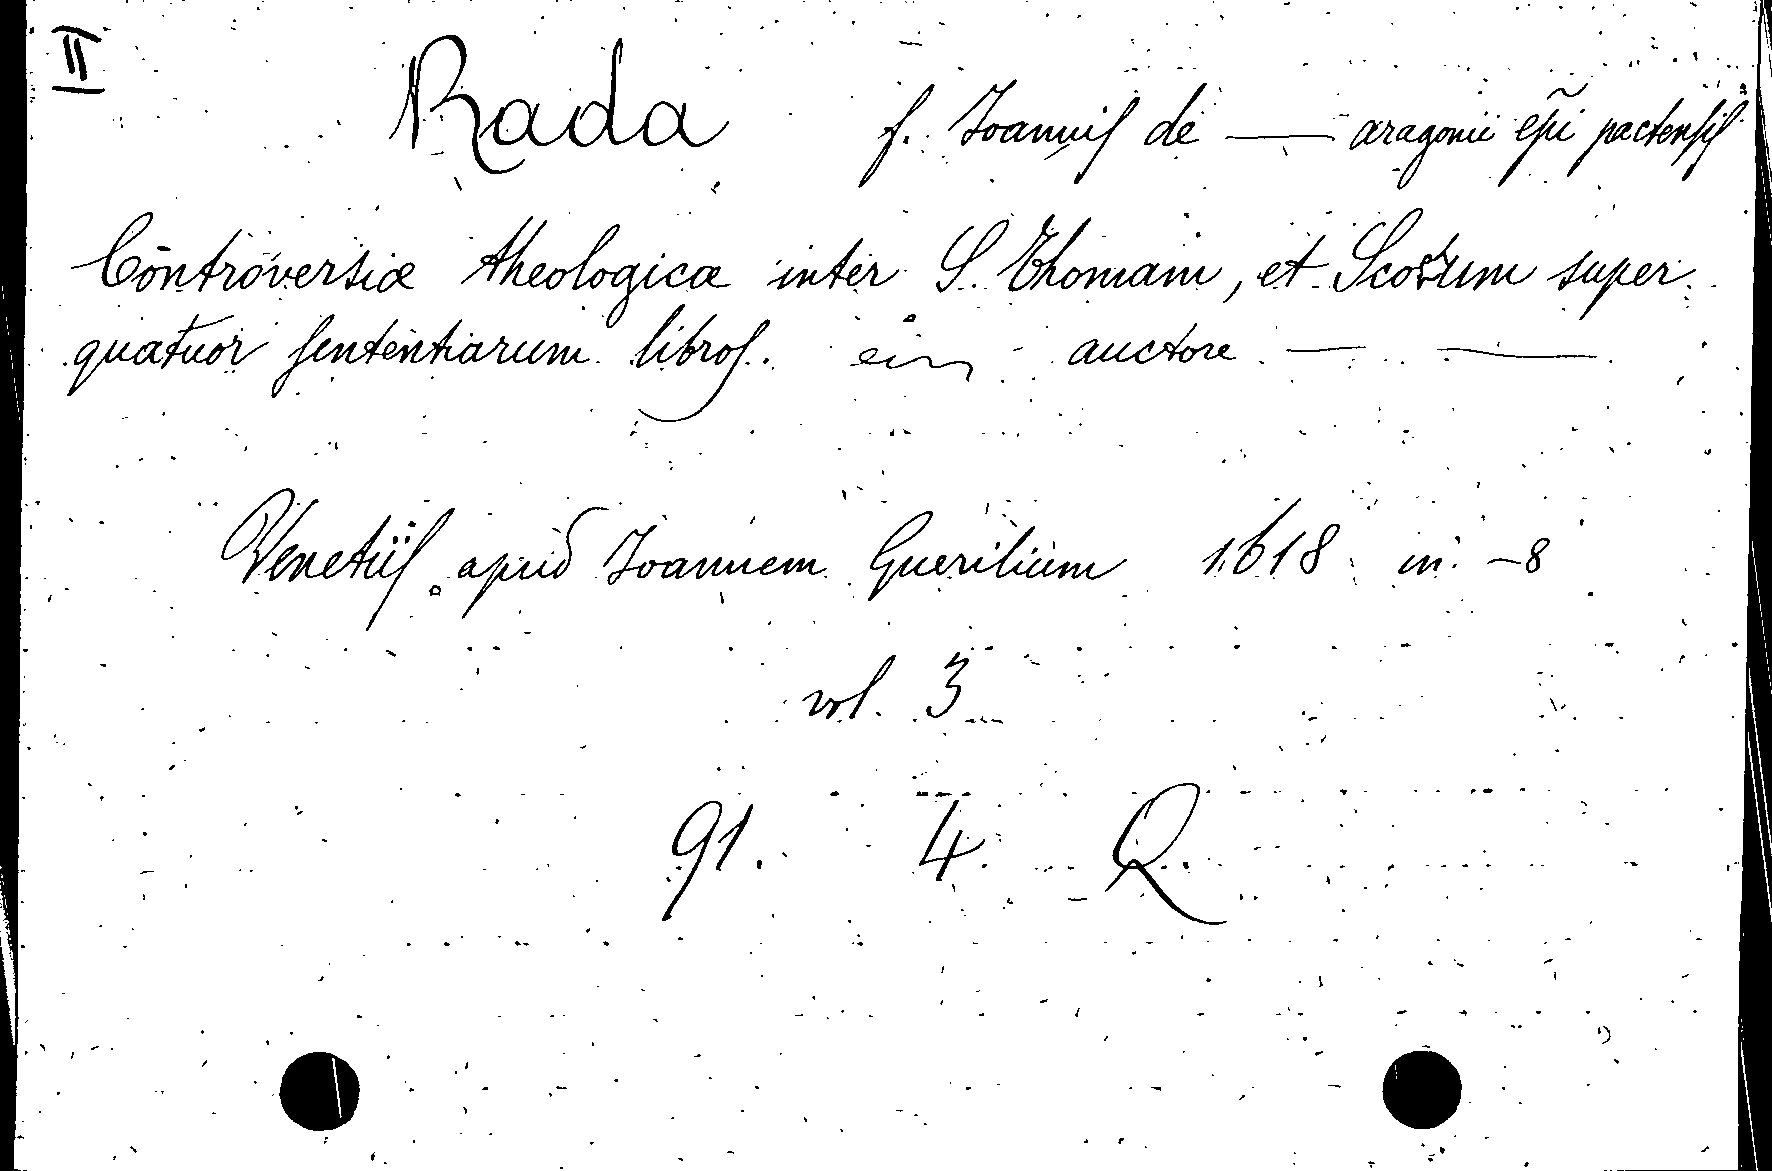 II
Rada f. Joannis de — aragonii epĩ pactensis
Controversiæ theologicæ inter S. Thomam, et Scotum super
quatuor sententiarum libros. auctore — —
Venetiis apud Joannem Guerilium 1618 in -8
vol. 3
91. 4. Q